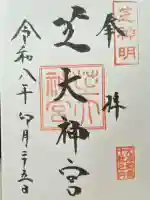 奉拝
芝神明
芝大神宮
令和八年卯月二十五日